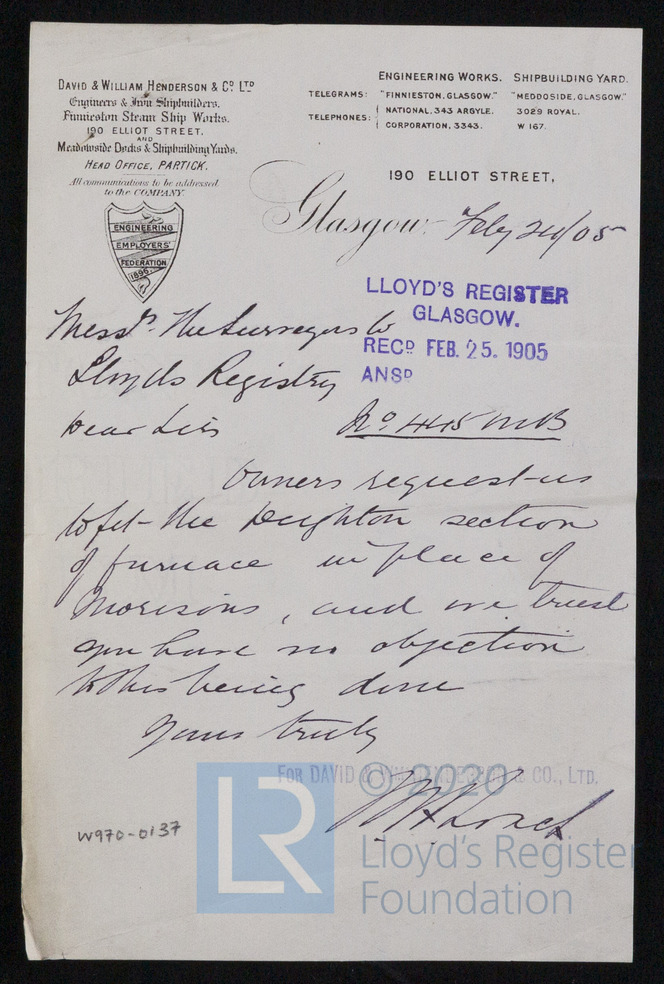 DAVID & WILLIAM HENDERSON & Co. LTD
Engineers & Iron Shipbuilders.
Finnieston Steam Ship Works.
190 ELLIOT STREET,
AND
Meadowside Docks & Shipbuilding Yards.
HEAD OFFICE, PARTICK.
All communications to be addressed
to the COMPANY.
ENGINEERING
EMPLOYERS'
FEDERATION
1896.
ENGINEERING WORKS. SHIPBUILDING YARD.
TELEGRAMS: "FINNIESTON, GLASGOW." "MEDDOSIDE, GLASGOW."
TELEPHONES: NATIONAL, 343 ARGYLE. 3029 ROYAL.
CORPORATION, 3343. W 167.
190 ELLIOT STREET,
Glasgow. Feby 24/05
LLOYD'S REGISTER
GLASGOW.
RECD FEB. 25. 1905
ANSD
Messrs. The Surveyors to
Lloyds Registry
Dear Sirs
No. 445 MB
Owners request us
to fit the Deighton section
of furnace in place of
Morisons, and we trust
you have no objection
to this being done
Yours truly
FOR DAVID & WM HENDERSON & CO., LTD.
W970-0137
© 2020
LR
Lloyd's Register
Foundation